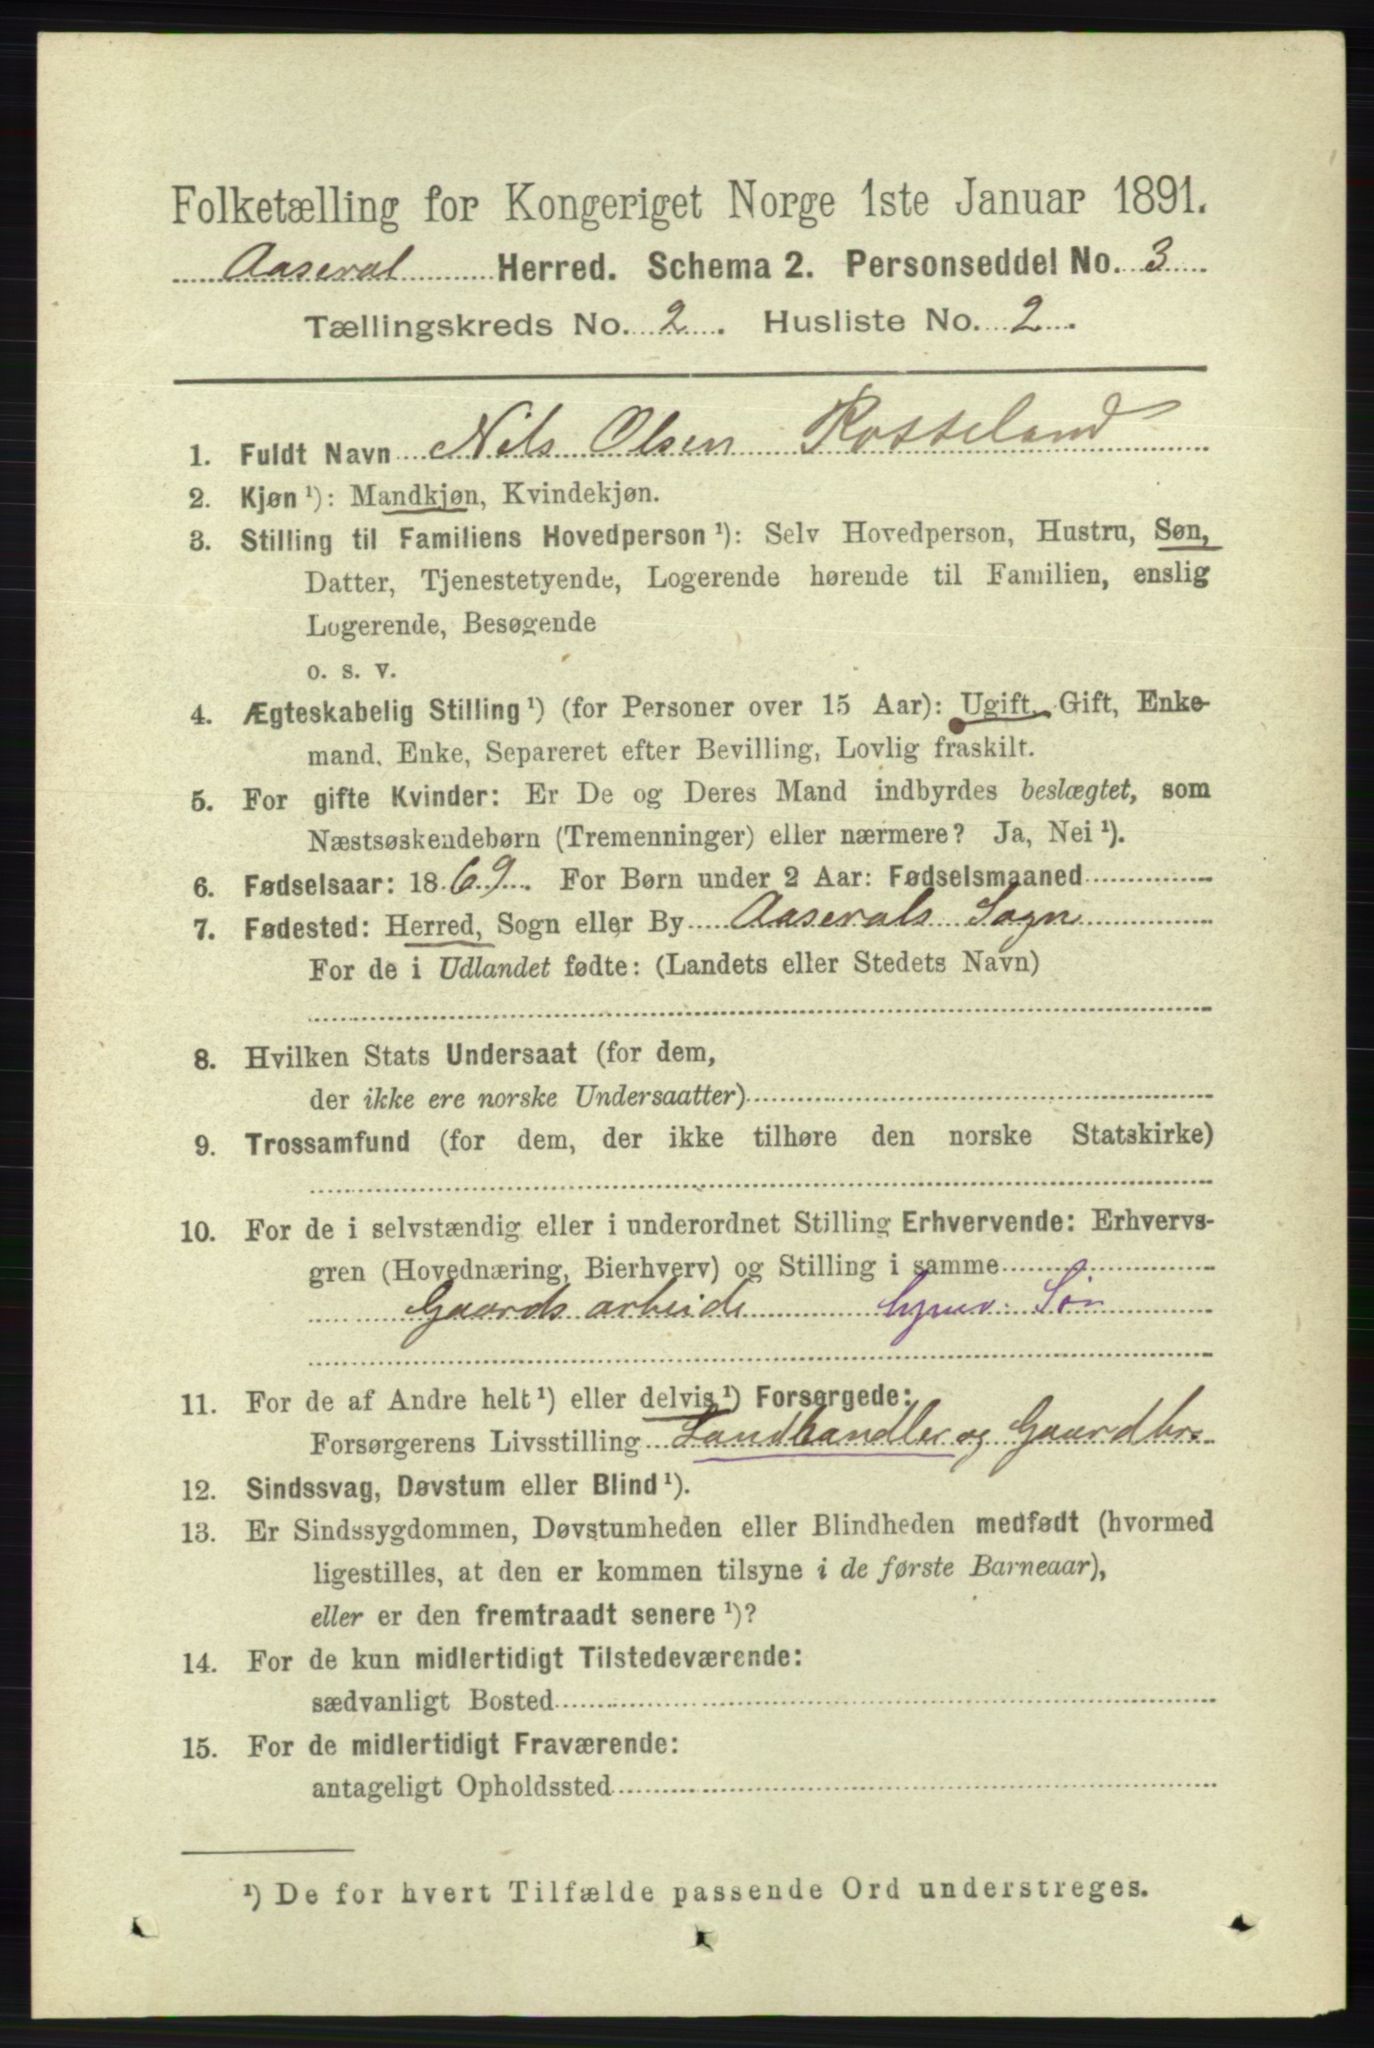 Folketælling for Kongeriget Norge 1ste Januar 1891.
Aaseral Herred. Schema 2. Personseddel No. 3
Tællingskreds No. 2. Husliste No. 2.
1. Fuldt Navn Nils Olsen Rosseland
2. Kjøn ¹): Mandkjøn, Kvindekjøn.
3. Stilling til Familiens Hovedperson ¹): Selv Hovedperson, Hustru, Søn,
Datter, Tjenestetyende, Logerende hørende til Familien, enslig
Logerende, Besøgende
o. s. v.
4. Ægteskabelig Stilling ¹) (for Personer over 15 Aar): Ugift, Gift, Enke-
mand, Enke, Separeret efter Bevilling, Lovlig fraskilt.
5. For gifte Kvinder: Er De og Deres Mand indbyrdes beslægtet, som
Næstsøskendebørn (Tremenninger) eller nærmere? Ja, Nei ¹).
6. Fødselsaar: 1869. For Børn under 2 Aar: Fødselsmaaned
7. Fødested: Herred, Sogn eller By Aaserals Sogn
For de i Udlandet fødte: (Landets eller Stedets Navn)
8. Hvilken Stats Undersaat (for dem,
der ikke ere norske Undersaatter)
9. Trossamfund (for dem, der ikke tilhøre den norske Statskirke)
10. For de i selvstændig eller i underordnet Stilling Erhvervende: Erhvervs-
gren (Hovednæring, Bierhverv) og Stilling i samme
Gaards arbeide Søn
11. For de af Andre helt ¹) eller delvis ¹) Forsørgede:
Forsørgerens Livsstilling Landhandler og Gaardbr.
12. Sindssvag, Døvstum eller Blind ¹).
13. Er Sindssygdommen, Døvstumheden eller Blindheden medfødt (hvormed
ligestilles, at den er kommen tilsyne i de første Barneaar),
eller er den fremtraadt senere ¹)?
14. For de kun midlertidigt Tilstedeværende:
sædvanligt Bosted
15. For de midlertidigt Fraværende:
antageligt Opholdssted
¹) De for hvert Tilfælde passende Ord understreges.